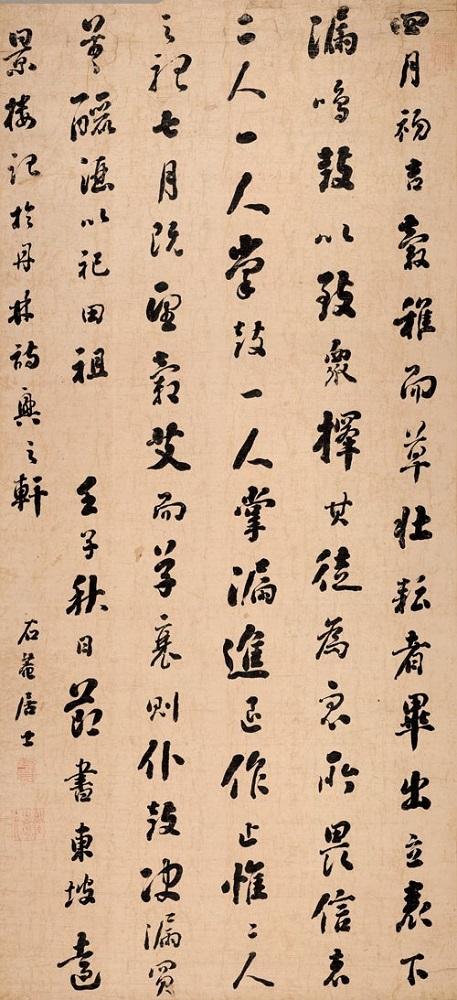 四月初吉穀稚而草壯耘者畢出立表下
漏鳴鼓以致衆擇其徒為衆所畏信者
二人一人掌鼓一人掌漏進退作止惟二人
之七月既望穀艾而草衰則仆鼓決漏買
釃酒以祀田祖 壬子秋日節書東坡遠
景樓記於丹林詩興之軒 石菴居士